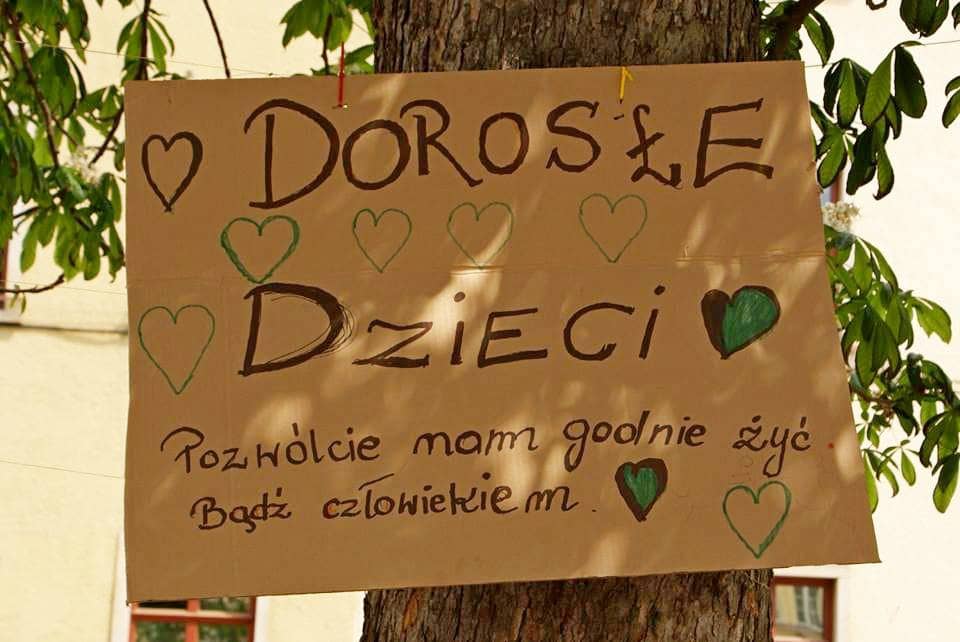 DOROSŁE
DZIECI
Pozwólcie nam godnie żyć
Bądź człowiekiem.